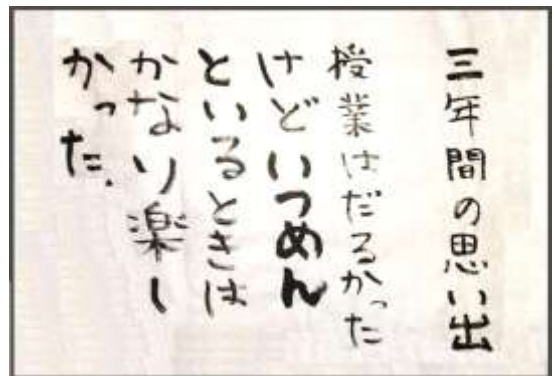 三年間の思い出
授業はだるかった
けどいつめん
といるときは
かなり楽し
かった.